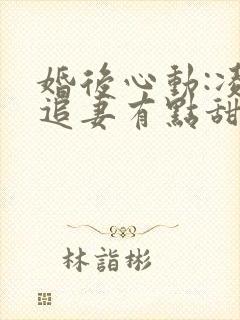 婚後心動:凌
追妻有點甜
林詣彬